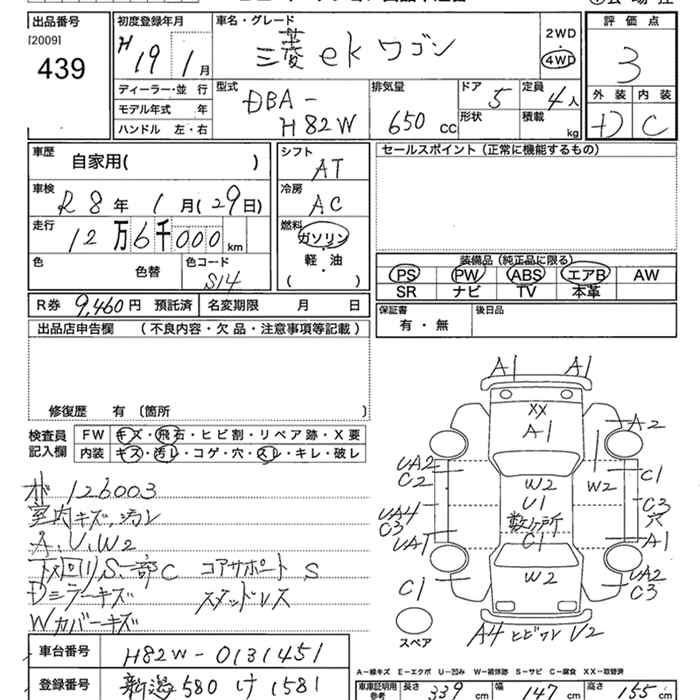 出品番号 初度登録年月 車名・グレード 評価点
[2009]
439
H19 1月
三菱 ekワゴン
2WD
・
4WD
3
ディーラー・並 行
モデル年式 年
ハンドル 左・右
型式 DBA-
H82W
排気量
650 cc
ドア 5
形状
定員 4人
積載 kg
外装 内装
D C
車歴 自家用( )
シフト
AT
セールスポイント(正常に機能するもの)
車検 R8年 1月(29日)
冷房
AC
走行
12万6千000km
燃料
ガソリン
・
軽・油
( )
色 色替 色コード
S14
装備品(純正品に限る)
PS PW ABS エアB AW
SR ナビ TV 本革
R券 9,460円 預託済 名変期限 月 日
保証書 後日品
有・無
出品店申告欄 (不良内容・欠品・注意事項等記載)
修復歴 有〔箇所 〕
検査員
記入欄
FW キズ・飛石・ヒビ割・リペア跡・X要
内装 キズ・汚レ・コゲ・穴・スレ・キレ・破レ
126003
室内キズ、汚レ
A、U、W2
下回りS、一部C コアサポート S
Dミラーキズ スタッドレス
Wカバーキズ
A1 A1
XX
A1
A2
UA2
C2
W2
W2
C1
U1
数ヶ所
C1
UA4
C3
C3
穴
UA1
A1
W2
UA2
C3
C1
スペア
A4 ヒビワレ U2
車台番号 H82W-0131451
登録番号 新潟580 け 1581
A-線キズ E-エクボ U-凹み W-補修跡 S-サビ C-腐食 XX-取替済
車庫証明用
参考
長さ 339 cm 幅 147 cm 高さ 155 cm